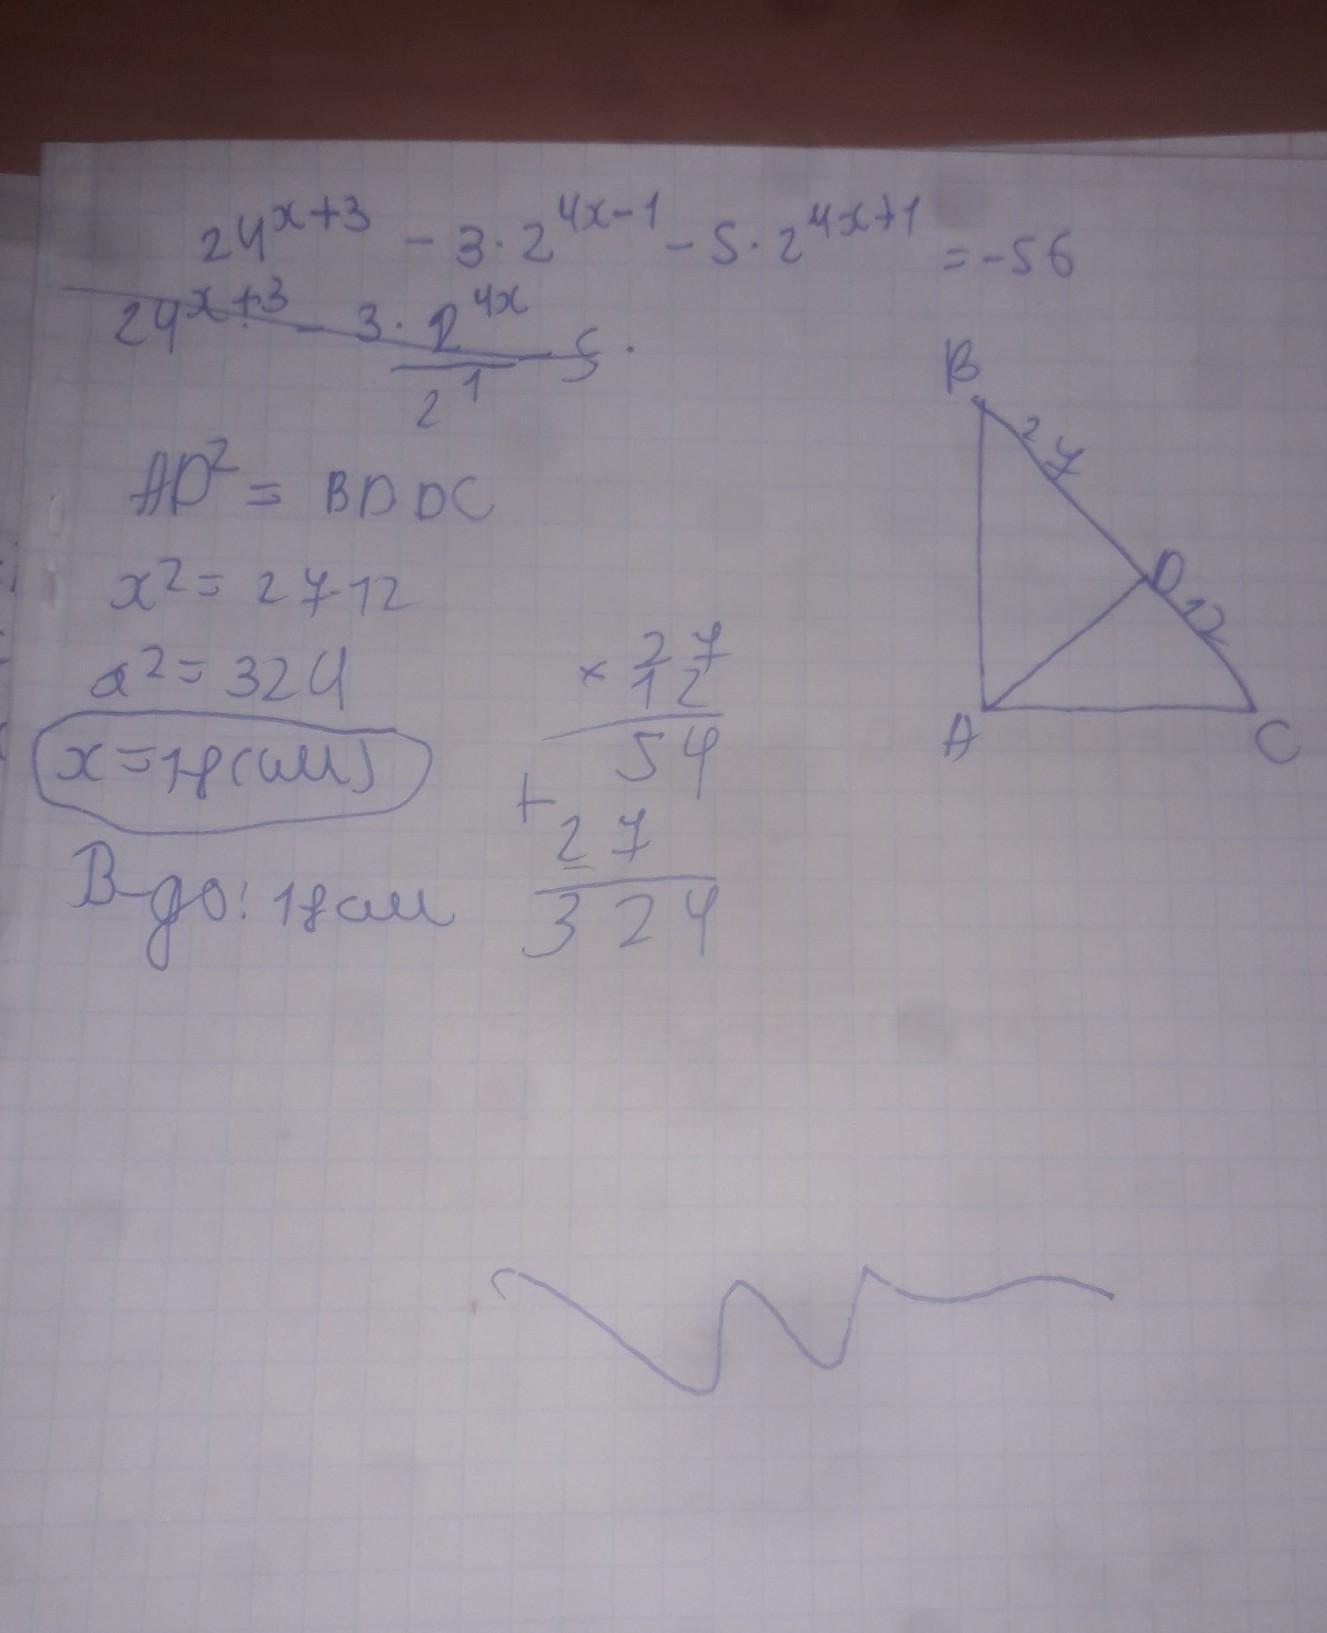 24^{x+3} - 3·2^{4x-1} - 5·2^{4x+1} = -56
24^{x+3} - 3·2^{4x}/2^1 - 5·
AD² = BD DC
x² = 27·12
x² = 324
x = 18 (см)
В-дь: 18 см
× 27
12
54
+
27
324
B
27
D
12
A
C